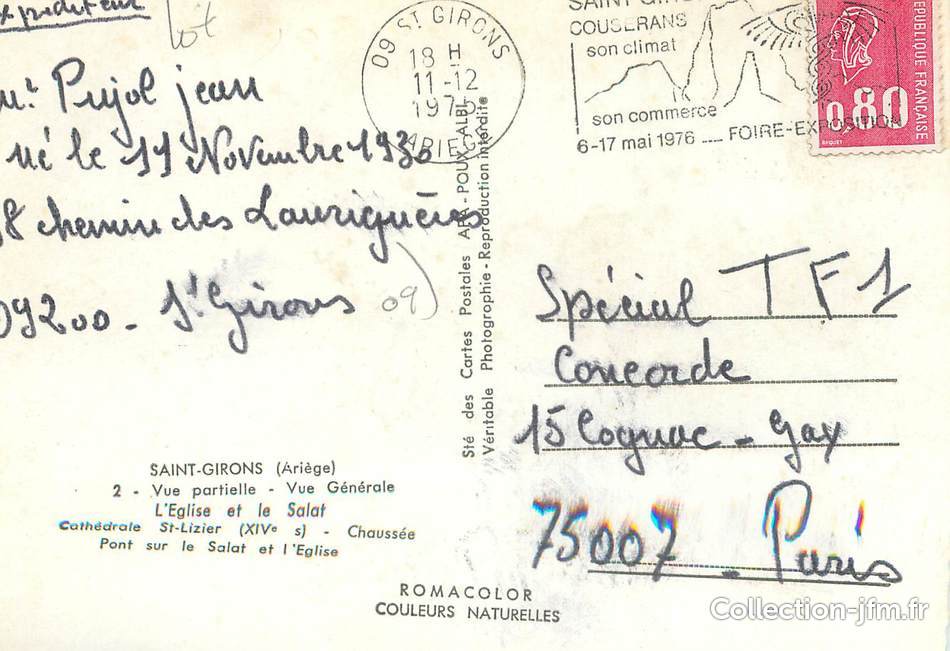 expéditeur
lot
mr Pujol jean
né le 11 Novembre 1930
38 chemin des Laurignères
09200 - St Girons
09
09 ST GIRONS
18 H
11-12
1975
ARIEGE
COUSERANS
son climat
son commerce
6-17 mai 1976 .... FOIRE-EXPOSITION
REPUBLIQUE FRANÇAISE
0,80
Sté des Cartes Postales APA - POUX - ALBI
Véritable Photographie - Reproduction interdite
Spécial TF1
Concorde
15 Cognac - Gay
75007 - Paris
SAINT-GIRONS (Ariège)
2 - Vue partielle - Vue Générale
L'Eglise et le Salat
Cathédrale St-Lizier (XIVe s) - Chaussée
Pont sur le Salat et l'Eglise
ROMACOLOR
COULEURS NATURELLES
Collection-jfm.fr